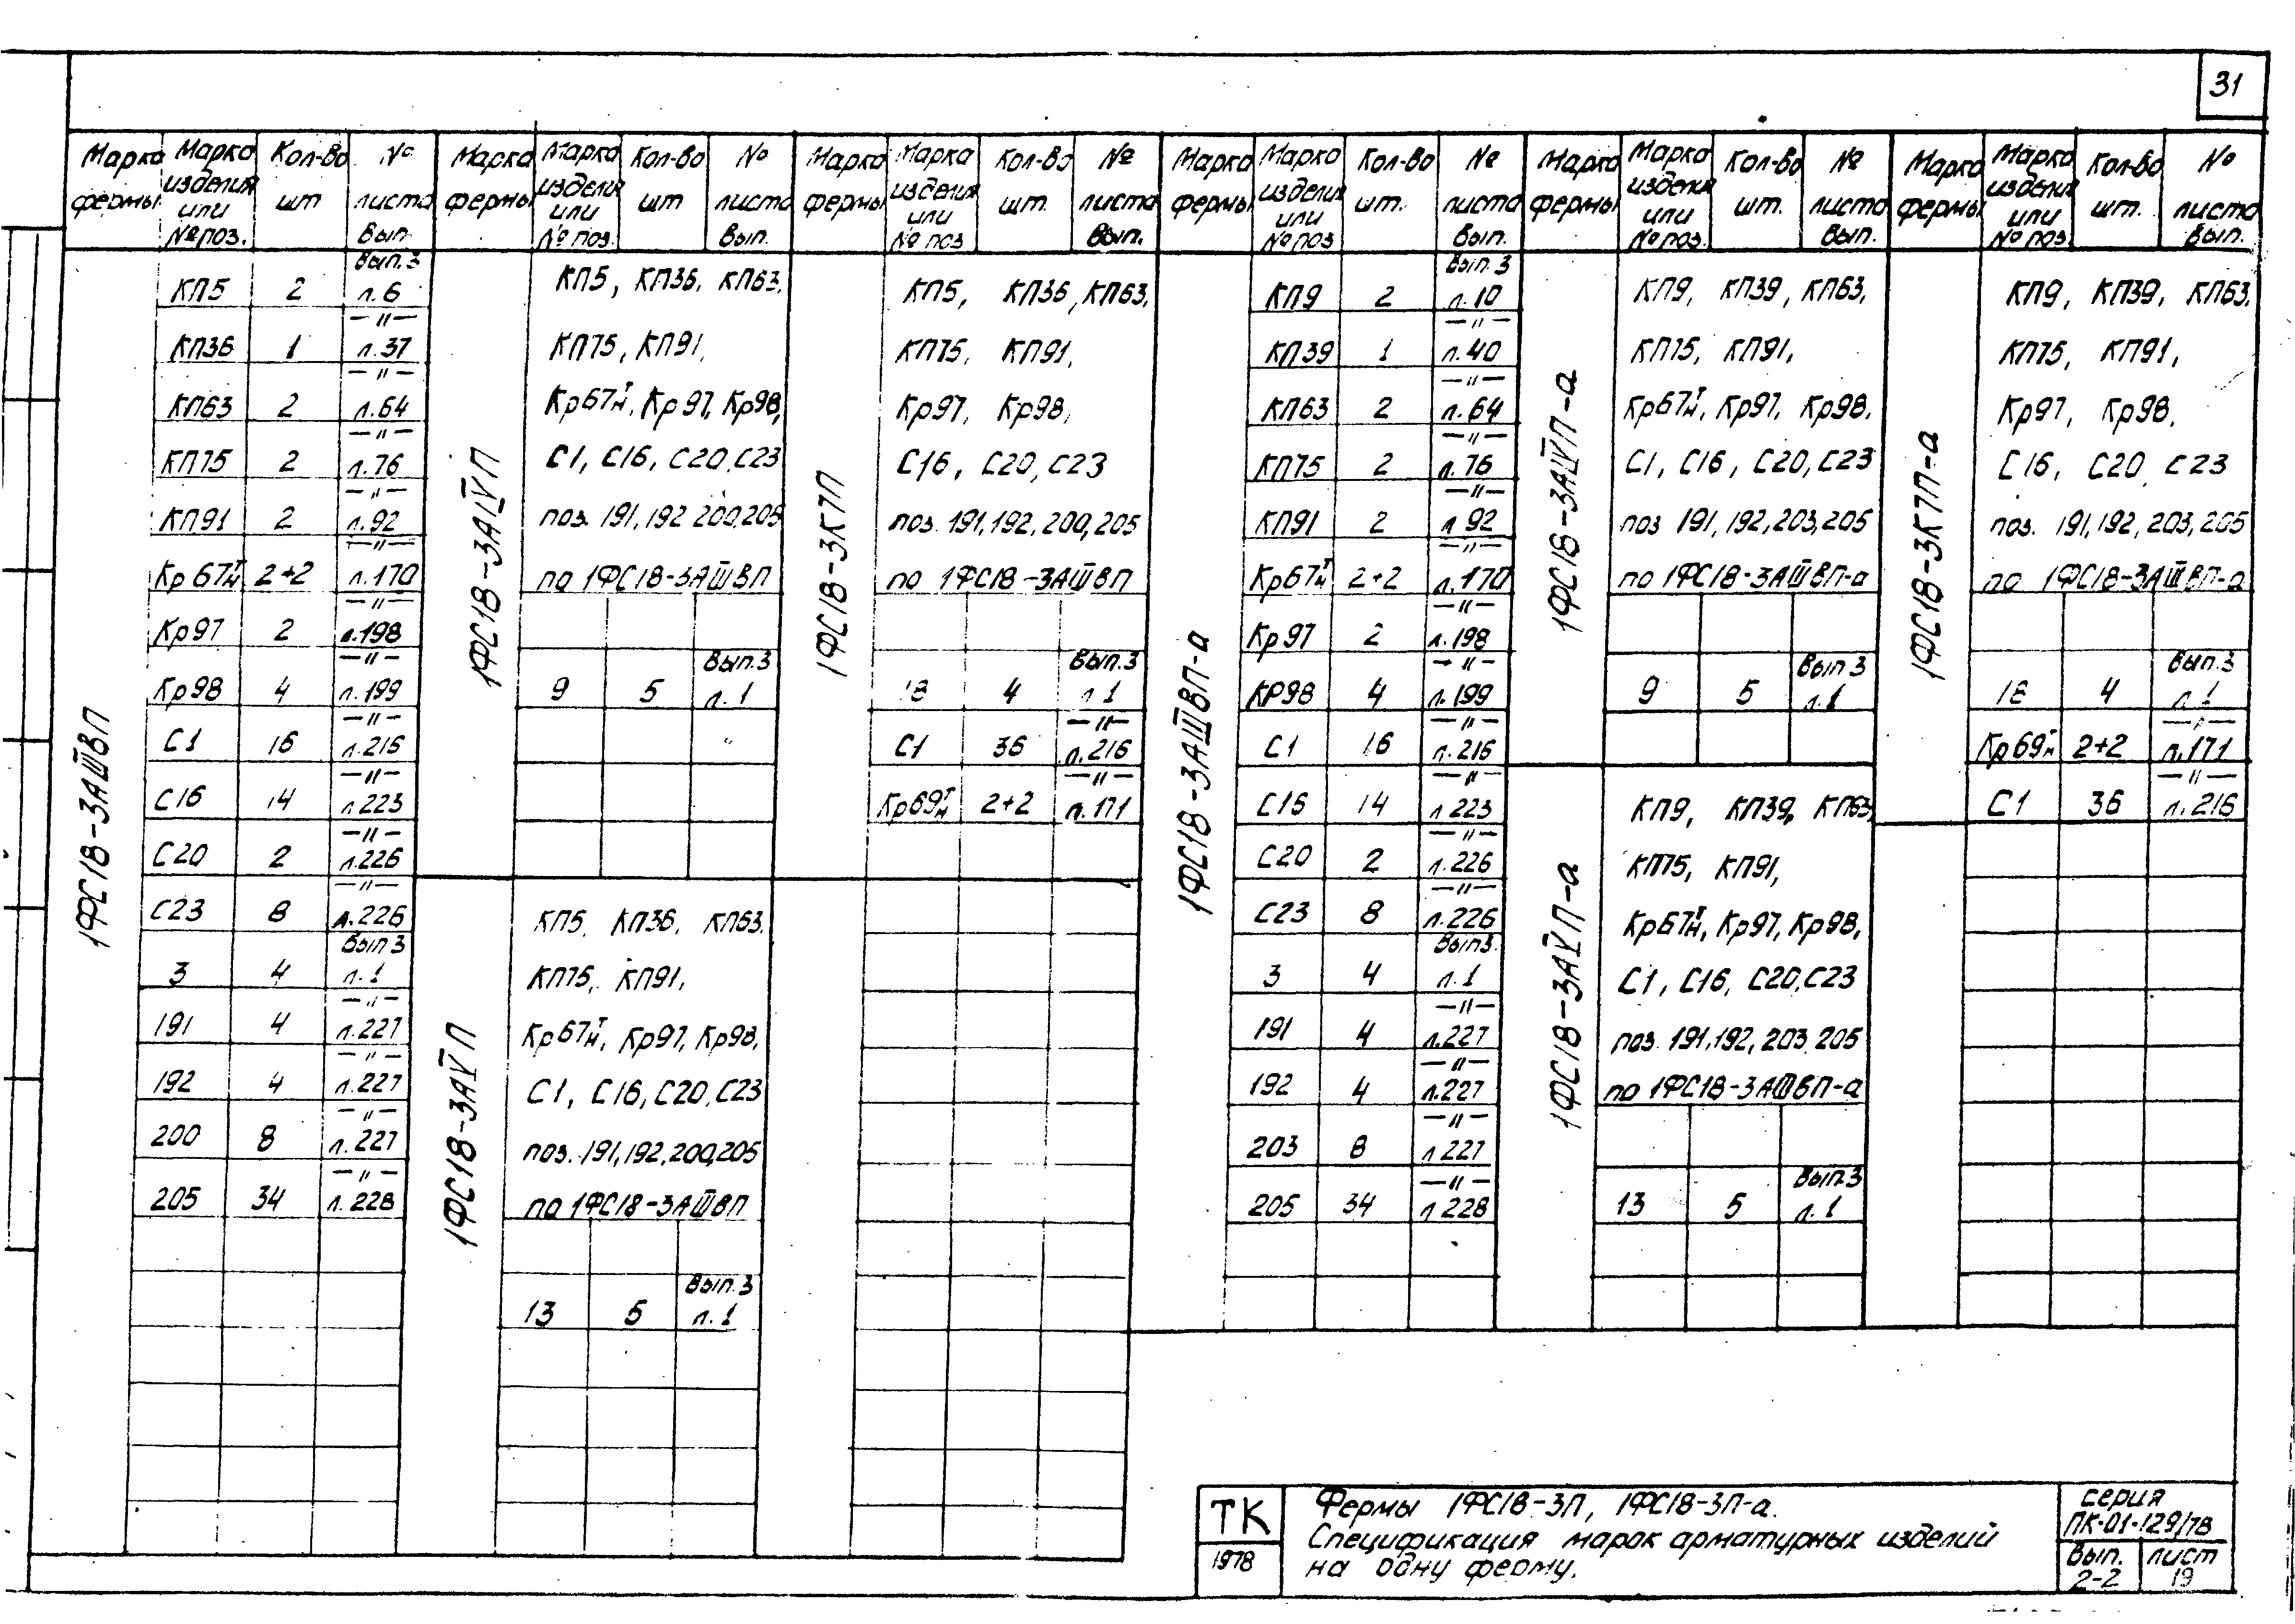 31
Марка фермы | Марка изделия или № поз. | Кол-во шт | № листа вып.
1ФС18-3АШВП
КП5 2 Вып.3 л.6
КП36 1 —"— л.37
КП63 2 —"— л.64
КП75 2 —"— л.76
КП91 2 —"— л.92
Кр67т/н 2+2 —"— л.170
Кр97 2 —"— л.198
Кр98 4 —"— л.199
С1 16 —"— л.216
С16 14 —"— л.223
С20 2 —"— л.226
С23 8 —"— л.226
3 4 Вып.3 л.1
191 4 —"— л.227
192 4 —"— л.227
200 8 —"— л.227
205 34 —"— л.228
Марка фермы | Марка изделия или № поз. | Кол-во шт | № листа вып.
1ФС18-3АIVП
КП5, КП36, КП63,
КП75, КП91,
Кр67т/н, Кр97, Кр98,
С1, С16, С20, С23
поз. 191, 192 200, 205
по 1ФС18-3АШВП
9 5 Вып.3 л.1
1ФС18-3АVП
КП5, КП36, КП63,
КП75, КП91,
Кр67т/н, Кр97, Кр98,
С1, С16, С20, С23
поз. 191, 192, 200, 205
по 1ФС18-3АШВП
13 5 Вып.3 л.1
Марка фермы | Марка изделия или № поз | Кол-во шт. | № листа вып.
1ФС18-3К7П
КП5, КП36, КП63,
КП75, КП91,
Кр97, Кр98,
С16, С20, С23
поз. 191, 192, 200, 205
по 1ФС18-3АШВП
18 4 Вып.3 л 1
С1 36 —"— л.216
Кр69т/н 2+2 —"— л.171
Марка фермы | Марка изделия или № поз | Кол-во шт. | № листа вып.
1ФС18-3АШВП-а
КП9 2 Вып.3 л.10
КП39 1 —"— л.40
КП63 2 —"— л.64
КП75 2 —"— л.76
КП91 2 —"— л 92
Кр67т/н 2+2 —"— л.170
Кр97 2 —"— л.198
КР98 4 —"— л.199
С1 16 —"— л.216
С16 14 —"— л 223
С20 2 —"— л.226
С23 8 —"— л.226
3 4 Вып3. л.1
191 4 —"— л.227
192 4 —"— л.227
203 8 —"— л 227
205 34 —"— л 228
Марка фермы | Марка изделия или № поз. | Кол-во шт. | № листа вып.
1ФС18-3АIVП-а
КП9, КП39, КП63,
КП75, КП91,
Кр67т/н, Кр97, Кр98,
С1, С16, С20, С23
поз 191, 192, 203, 205
по 1ФС18-3АШВП-а
9 5 Вып.3 л.1
1ФС18-3АVП-а
КП9, КП39, КП63,
КП75, КП91,
Кр67т/н, Кр97, Кр98,
С1, С16, С20, С23
поз. 191, 192, 203, 205
по 1ФС18-3АШВП-а
13 5 Вып.3 л.1
Марка фермы | Марка изделия или № поз. | Кол-во шт. | № листа вып.
1ФС18-3К7П-а
КП9, КП39, КП63,
КП75, КП91,
Кр97, Кр98,
С16, С20, С23
поз. 191, 192, 203, 205
по 1ФС18-3АШВП-а
18 4 Вып.3 л 1
Кр69т/н 2+2 —"— л.171
С1 36 —"— л.216
ТК
1978
Фермы 1ФС18-3П, 1ФС18-3П-а.
Спецификация марок арматурных изделий
на одну ферму.
серия
ПК-01-129/78
Вып. 2-2
лист 19